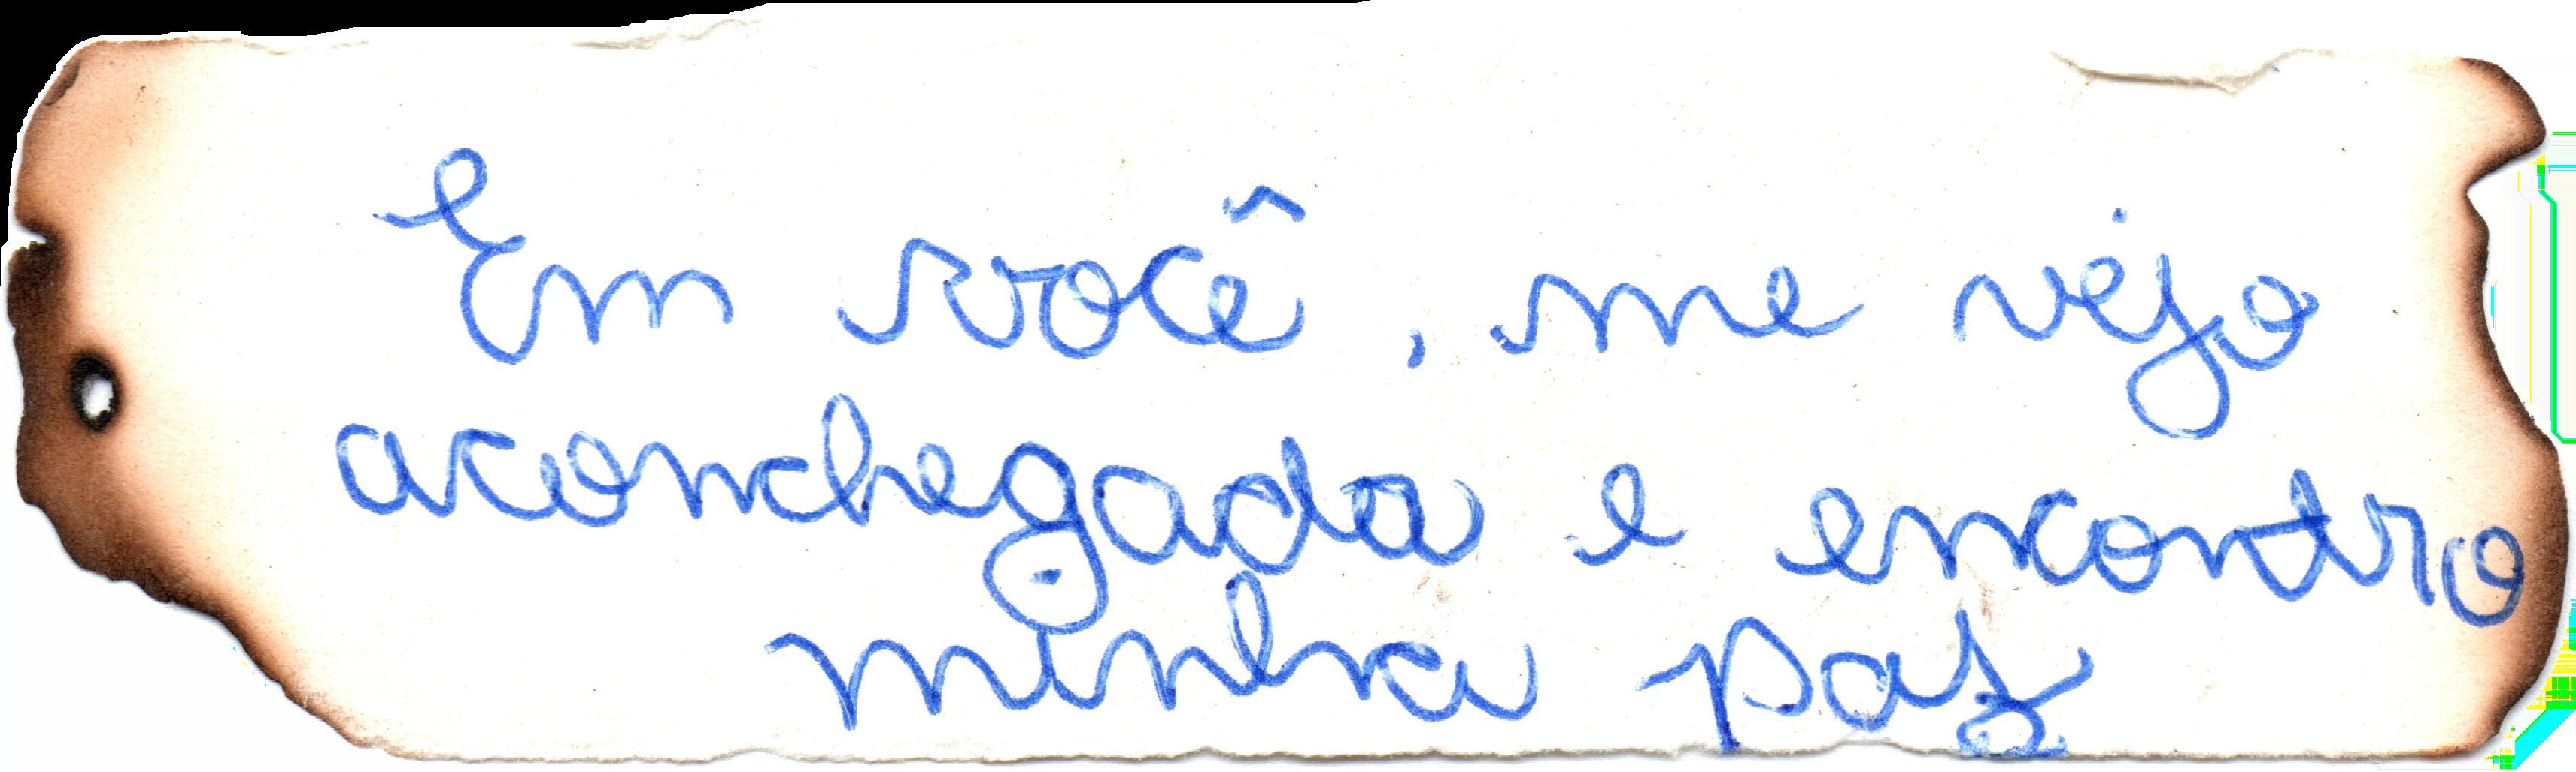 Em você, me vejo
aconchegada e encontro
minha paz